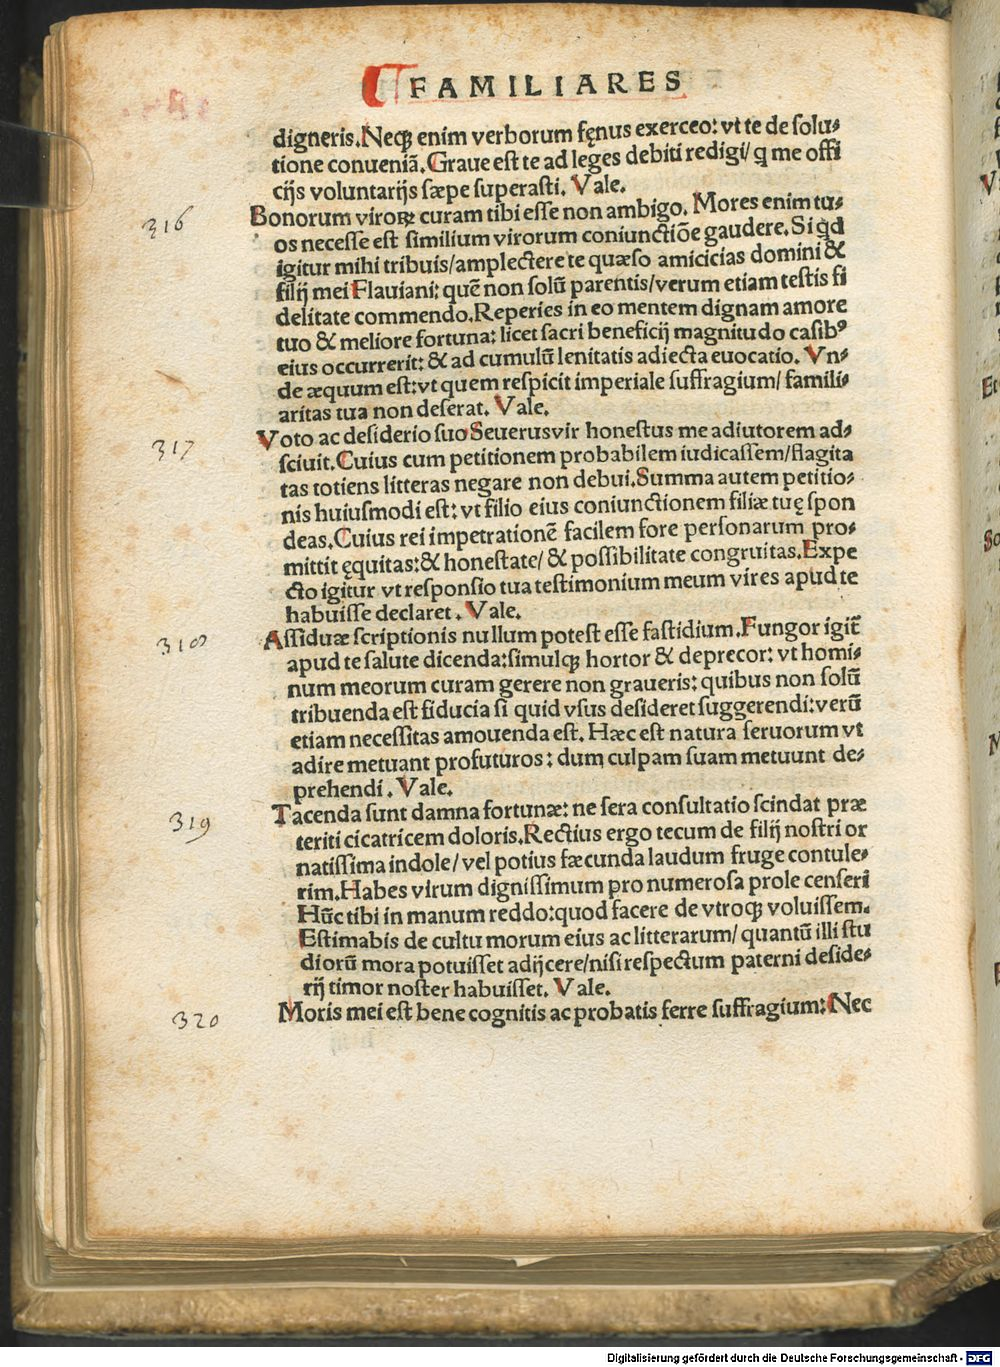 FAMILIARES
digneris. Neqꝫ enim verborum fęnus exerceo: vt te de ſolu⸗
tione conueniã. Graue eſt te ad leges debiti redigi/ ꝙ me offi
cijs voluntarijs ſæpe ſuperaſti. Vale.
316
Bonorum viroꝝ curam tibi eſſe non ambigo. Mores enim tu⸗
os neceſſe eſt ſimilium virorum coniunctiõe gaudere. Si qd
igitur mihi tribuis/amplectere te quæſo amicicias domini &
filij mei Flauiani: quẽ non ſolũ parentis/verum etiam teſtis fi
delitate commendo. Reperies in eo mentem dignam amore
tuo & meliore fortuna: licet ſacri beneficij magnitudo caſibꝰ
eius occurrerit: & ad cumulũ lenitatis adiecta euocatio. Vn⸗
de æquum eſt: vt quem reſpicit imperiale ſuffragium/ famili⸗
aritas tua non deſerat. Vale.
317
Voto ac deſiderio ſuo Seuerus vir honeſtus me adiutorem ad⸗
ſciuit. Cuius cum petitionem probabilem iudicaſſem/flagita
tas totiens litteras negare non debui. Summa autem petitio⸗
nis huiuſmodi eſt: vt filio eius coniunctionem filiæ tuę ſpon
deas. Cuius rei impetrationẽ facilem fore perſonarum pro⸗
mittit ęquitas: & honeſtate/ & poſſibilitate congruitas. Expe
cto igitur vt reſponſio tua teſtimonium meum vires apud te
habuiſſe declaret. Vale.
318
Aſſiduæ ſcriptionis nullum poteſt eſſe faſtidium. Fungor igit̃
apud te ſalute dicenda: ſimulqꝫ hortor & deprecor: vt homi⸗
num meorum curam gerere non graueris: quibus non ſolũ
tribuenda eſt fiducia ſi quid vſus deſideret ſuggerendi: verũ
etiam neceſſitas amouenda eſt. Hæc eſt natura ſeruorum vt
adire metuant profuturos: dum culpam ſuam metuunt de⸗
prehendi. Vale.
319
Tacenda ſunt damna fortunæ: ne ſera conſultatio ſcindat præ
teriti cicatricem doloris. Rectius ergo tecum de filij noſtri or
natiſſima indole/ vel potius fæcunda laudum fruge contule⸗
rim. Habes virum digniſſimum pro numeroſa prole cenſeri
Hũc tibi in manum reddo: quod facere de vtroqꝫ voluiſſem.
Eſtimabis de cultu morum eius ac litterarum/ quantũ illi ſtu
diorũ mora potuiſſet adijcere/niſi reſpectum paterni deſide⸗
rij timor noſter habuiſſet. Vale.
320
Moris mei eſt bene cognitis ac probatis ferre ſuffragium: Nec
Digitalisierung gefördert durch die Deutsche Forschungsgemeinschaft - DFG